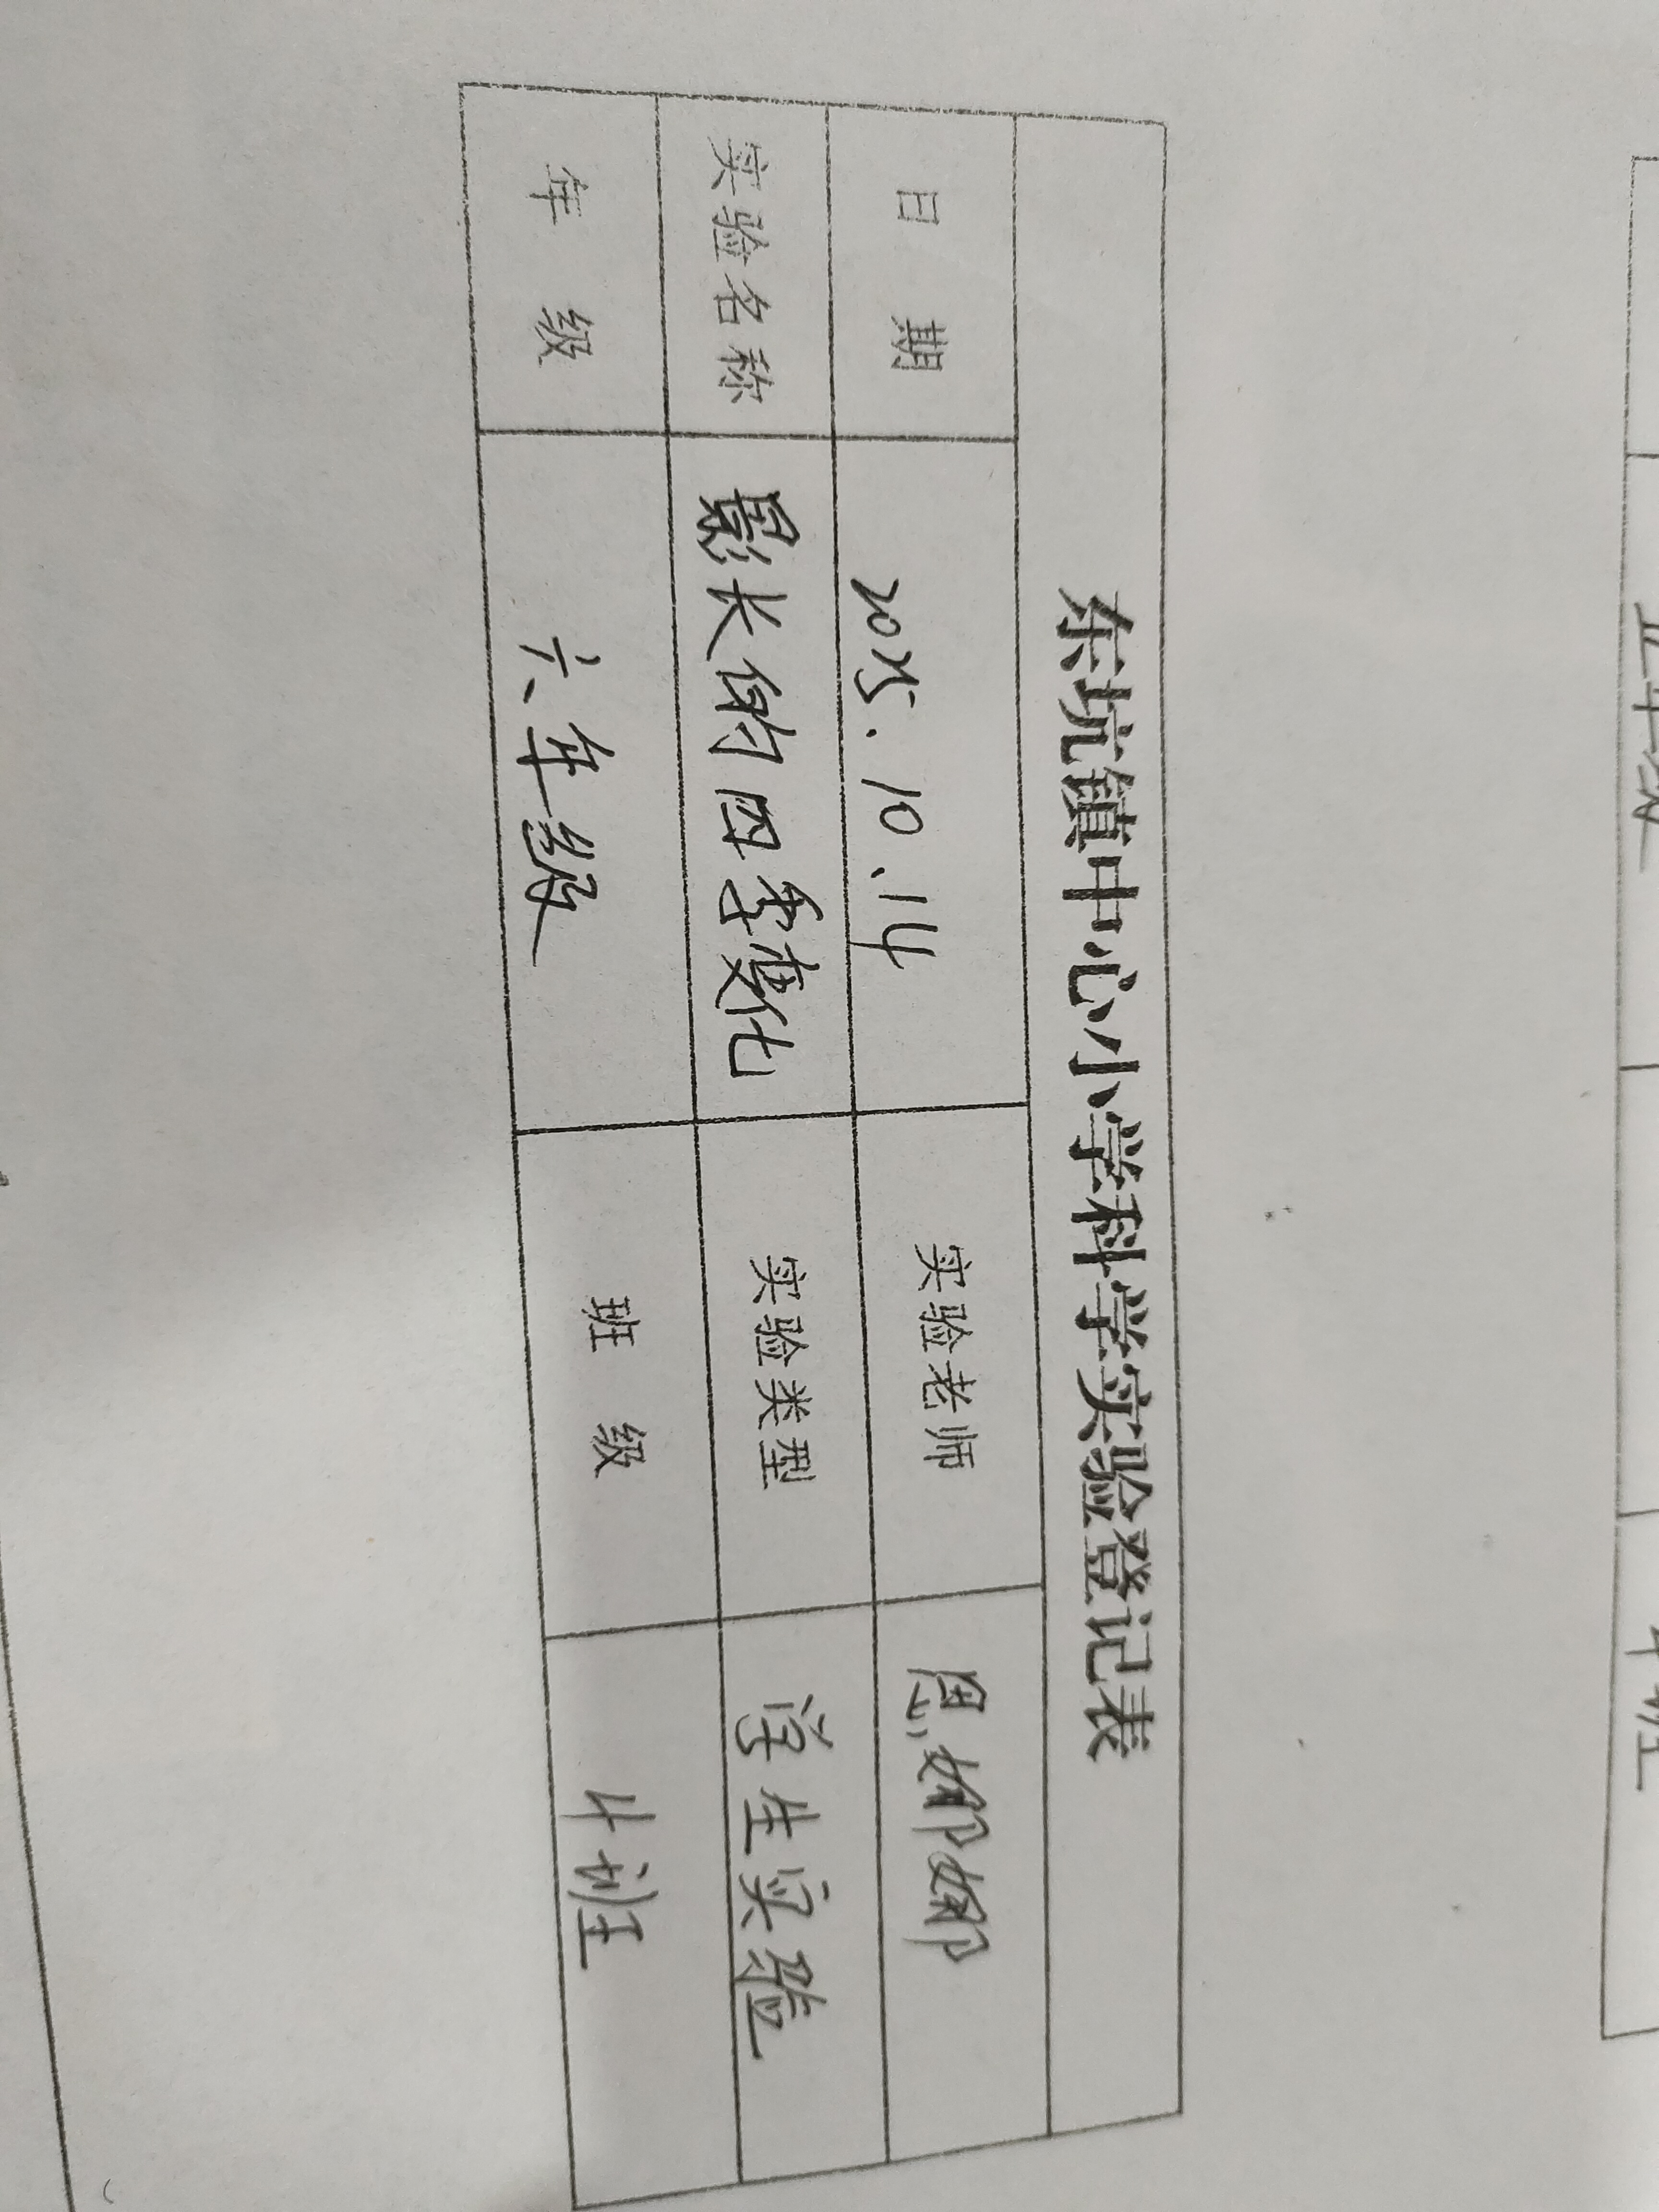 东坑镇中心小学科学实验登记表
日 期 2025.10.14 实验老师 恩娜娜
实验名称 影长的四季变化 实验类型 学生实验
年 级 六年级 班 级 4班